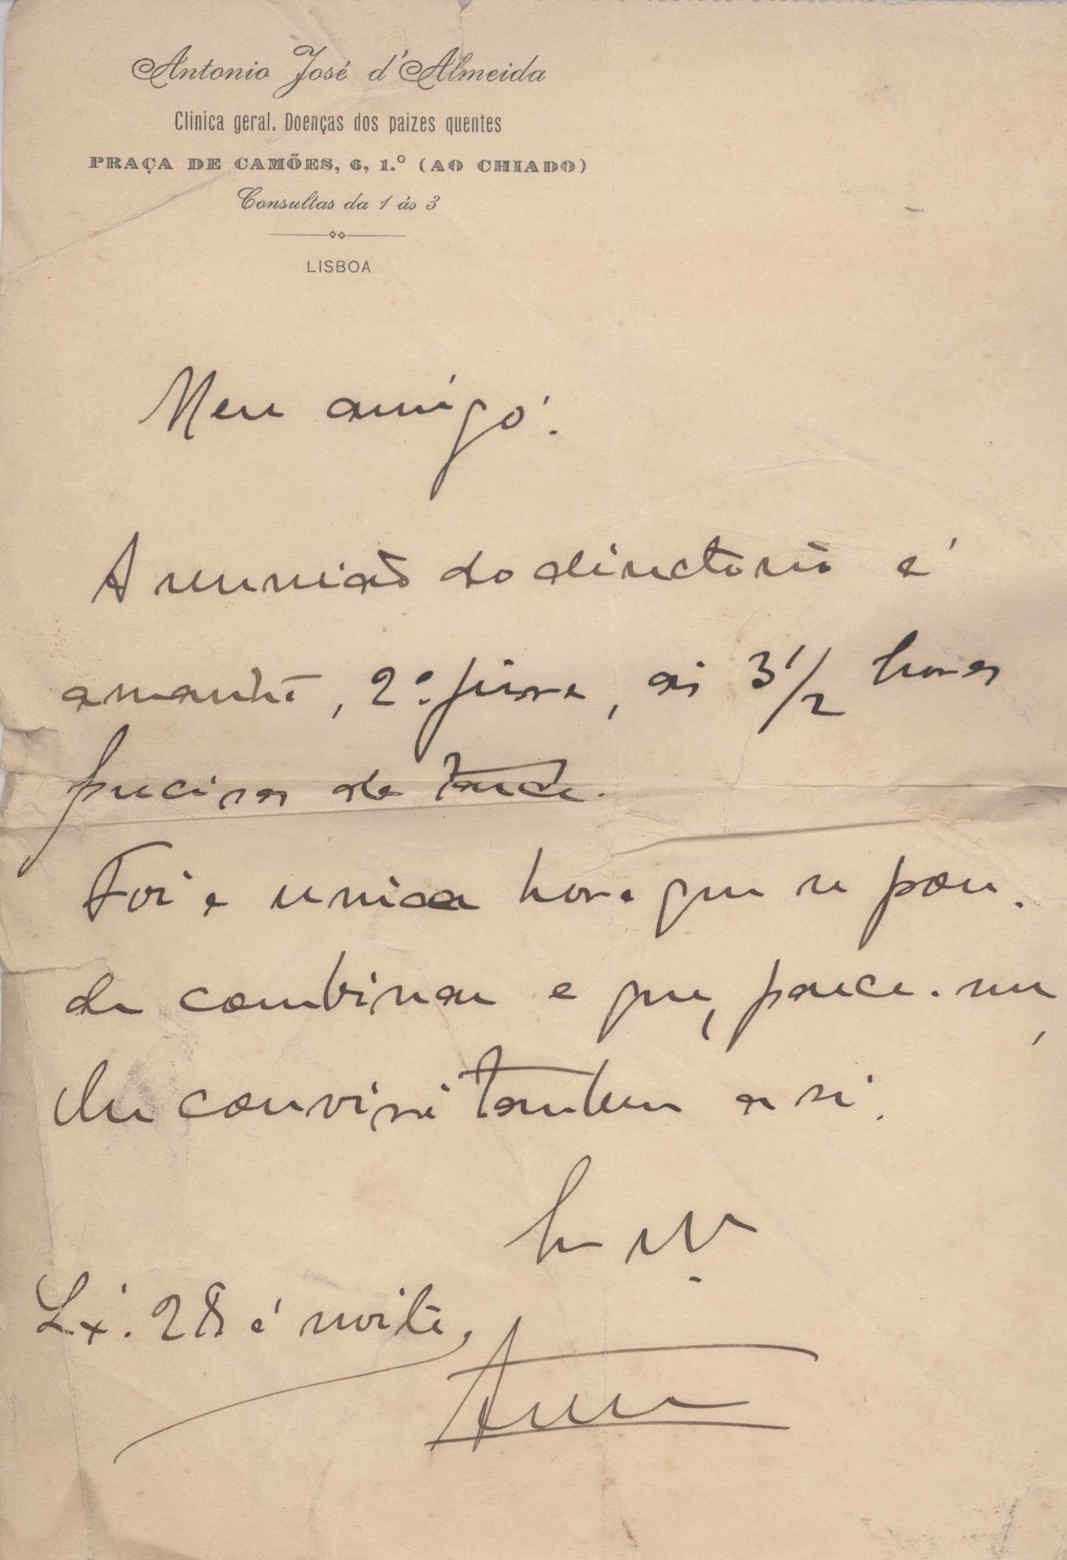 Antonio José d'Almeida
Clinica geral. Doenças dos paizes quentes
PRAÇA DE CAMÕES, 6, 1.º (AO CHIADO)
Consultas da 1 ás 3
LISBOA
Meu amigo:
A reunião do directorio é
amanhã, 2ª feira, ás 3 1/2 horas
precisas da tarde.
Foi a unica hora que se pou-
de combinar e que, parece-me,
lhe convirá tambem a si.
Lxª. 28 á noite,